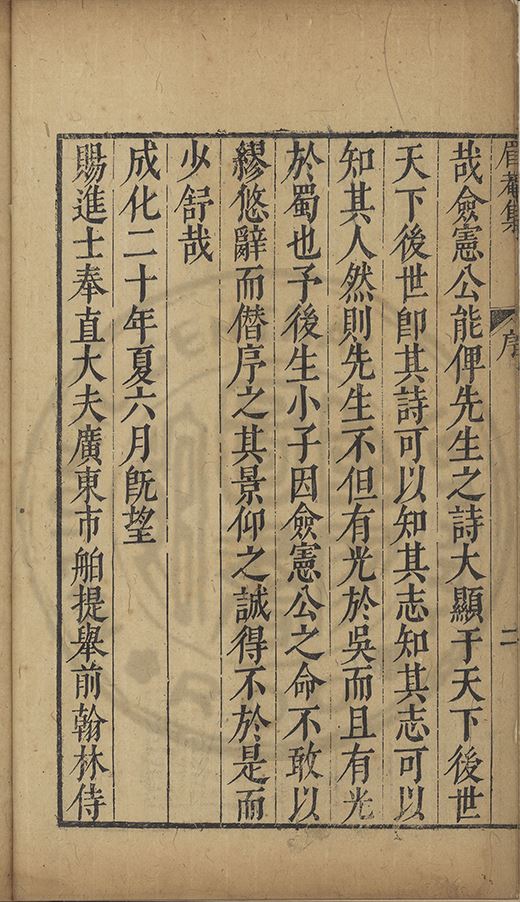 眉菴集 序 二
哉僉憲公能俾先生之詩大顯于天下後世
天下後世卽其詩可以知其志知其志可以
知其人然則先生不但有光於吳而且有光
於蜀也予後生小子因僉憲公之命不敢以
繆悠辭而僭序之其景仰之誠得不於是而
少舒哉
成化二十年夏六月旣望
賜進士奉直大夫廣東市舶提舉前翰林侍